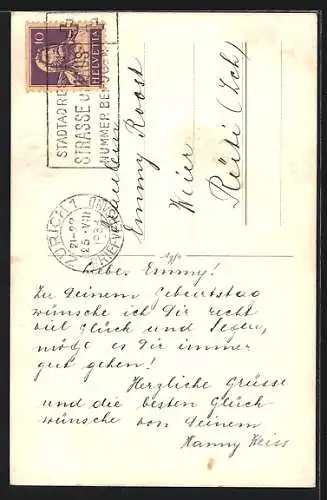 10
HELVETIA
STADTADRE
STRASSE U
NUMMER BE
ZÜRICH 1
21-22
25.VIII
BRIEFVERS
Fräulein
Emmy Roost
Weier
Rüti (Zch)
Liebes Emmy!
Zu Deinem Geburtstag
wünsche ich Dir recht
viel Glück und Segen,
möge es Dir immer
gut gehen!
Herzliche Grüsse
und die besten Glück-
wünsche von Deinem
Hanny Weiss